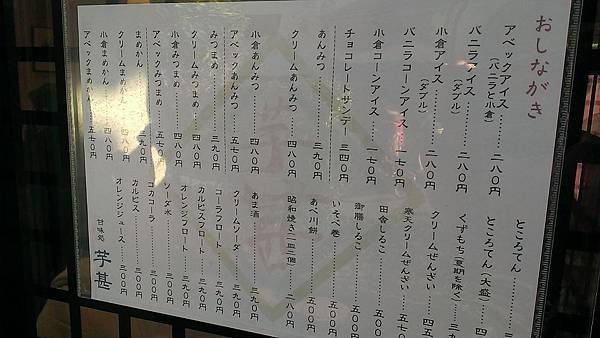 おしながき
アベックアイス……二八〇円
(バニラと小倉)
バニラアイス……二八〇円
(ダブル)
小倉アイス……二八〇円
(ダブル)
バニラコーンアイス…一七〇円
小倉コーンアイス……一七〇円
チョコレートサンデー…三四〇円
あんみつ……三九〇円
クリームあんみつ……四八〇円
小倉あんみつ……四八〇円
アベックあんみつ……五七〇円
みつまめ……三九〇円
クリームみつまめ……四八〇円
小倉みつまめ……四八〇円
アベックみつまめ……五七〇円
まめかん……三九〇円
クリームまめかん……四八〇円
小倉まめかん……四八〇円
アベックまめかん……五七〇円
ところてん
ところてん(大盛)
くずもち(夏期を除く)
クリームぜんざい
寒天クリームぜんざい
田舎しるこ……五〇〇
御膳しるこ……五〇〇円
いそべ巻……五〇〇円
あべ川餅……五〇〇円
昭和焼き(一皿二個)……二八〇円
あま酒……三九〇円
クリームソーダ……三九〇円
コーラフロート……三九〇円
カルピスフロート……三九〇円
オレンジフロート……三九〇円
ソーダ水……三〇〇円
コカコーラ……三〇〇円
カルピス……三〇〇円
オレンジジュース……三〇〇円
甘味処 芋甚